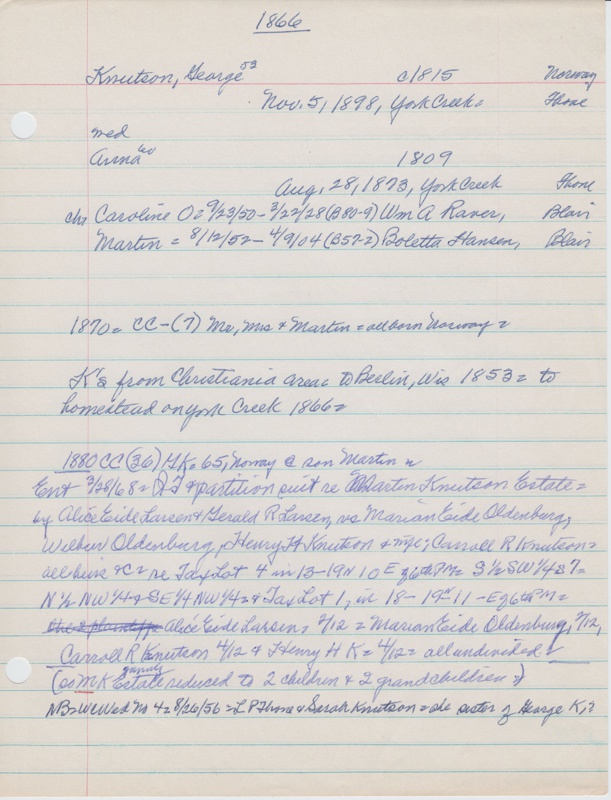 1866
Knutson, George 53 c1815 Norway
Nov. 5, 1898, York Creek = Thone
med
Anna 60 1809
Aug. 28, 1873, York Creek Thone
chs Caroline O = 9/23/50 - 3/22/28 (B80-9) Wm A Raver, Blair
Martin = 8/12/52 - 4/9/04 (B57-2) Boletta Hansen, Blair
1870 = CC - (7) Mr, Mrs & Martin = all born Norway =
K's from Christiania area = to Berlin, Wis 1853 = to
homestead on York Creek 1866 =
1880 CC (36) GK = 65, Norway c son Martin
Ent 3/28/68 = & partition suit re Martin Knutson Estate =
by Alice Eide Larsen & Gerald R Larsen, vs Marian Eide Oldenburg,
Wilbur Oldenburg, Henry H Knutson & wife; Carroll R Knutson =
all heirs &c = re Tax Lot 4 in 13-19N 10 E of 6th PM = S ½ SW ¼ & 7 =
N ½ NW ¼ & SE ¼ NW ¼ = & Tax Lot 1, in 18 - 19N 11 - E of 6th PM =
Alice Eide Larsen = 2/12 = Marian Eide Oldenburg, 2/12,
Carroll R Knutson 4/12 & Henry H K = 4/12 = all undivided =
(os MK Estate family reduced to 2 children & 2 grandchildren =)
NB = We Wed No 4 = 8/26/56 = L P Thone & Sarah Knutson = she sister of George K,?